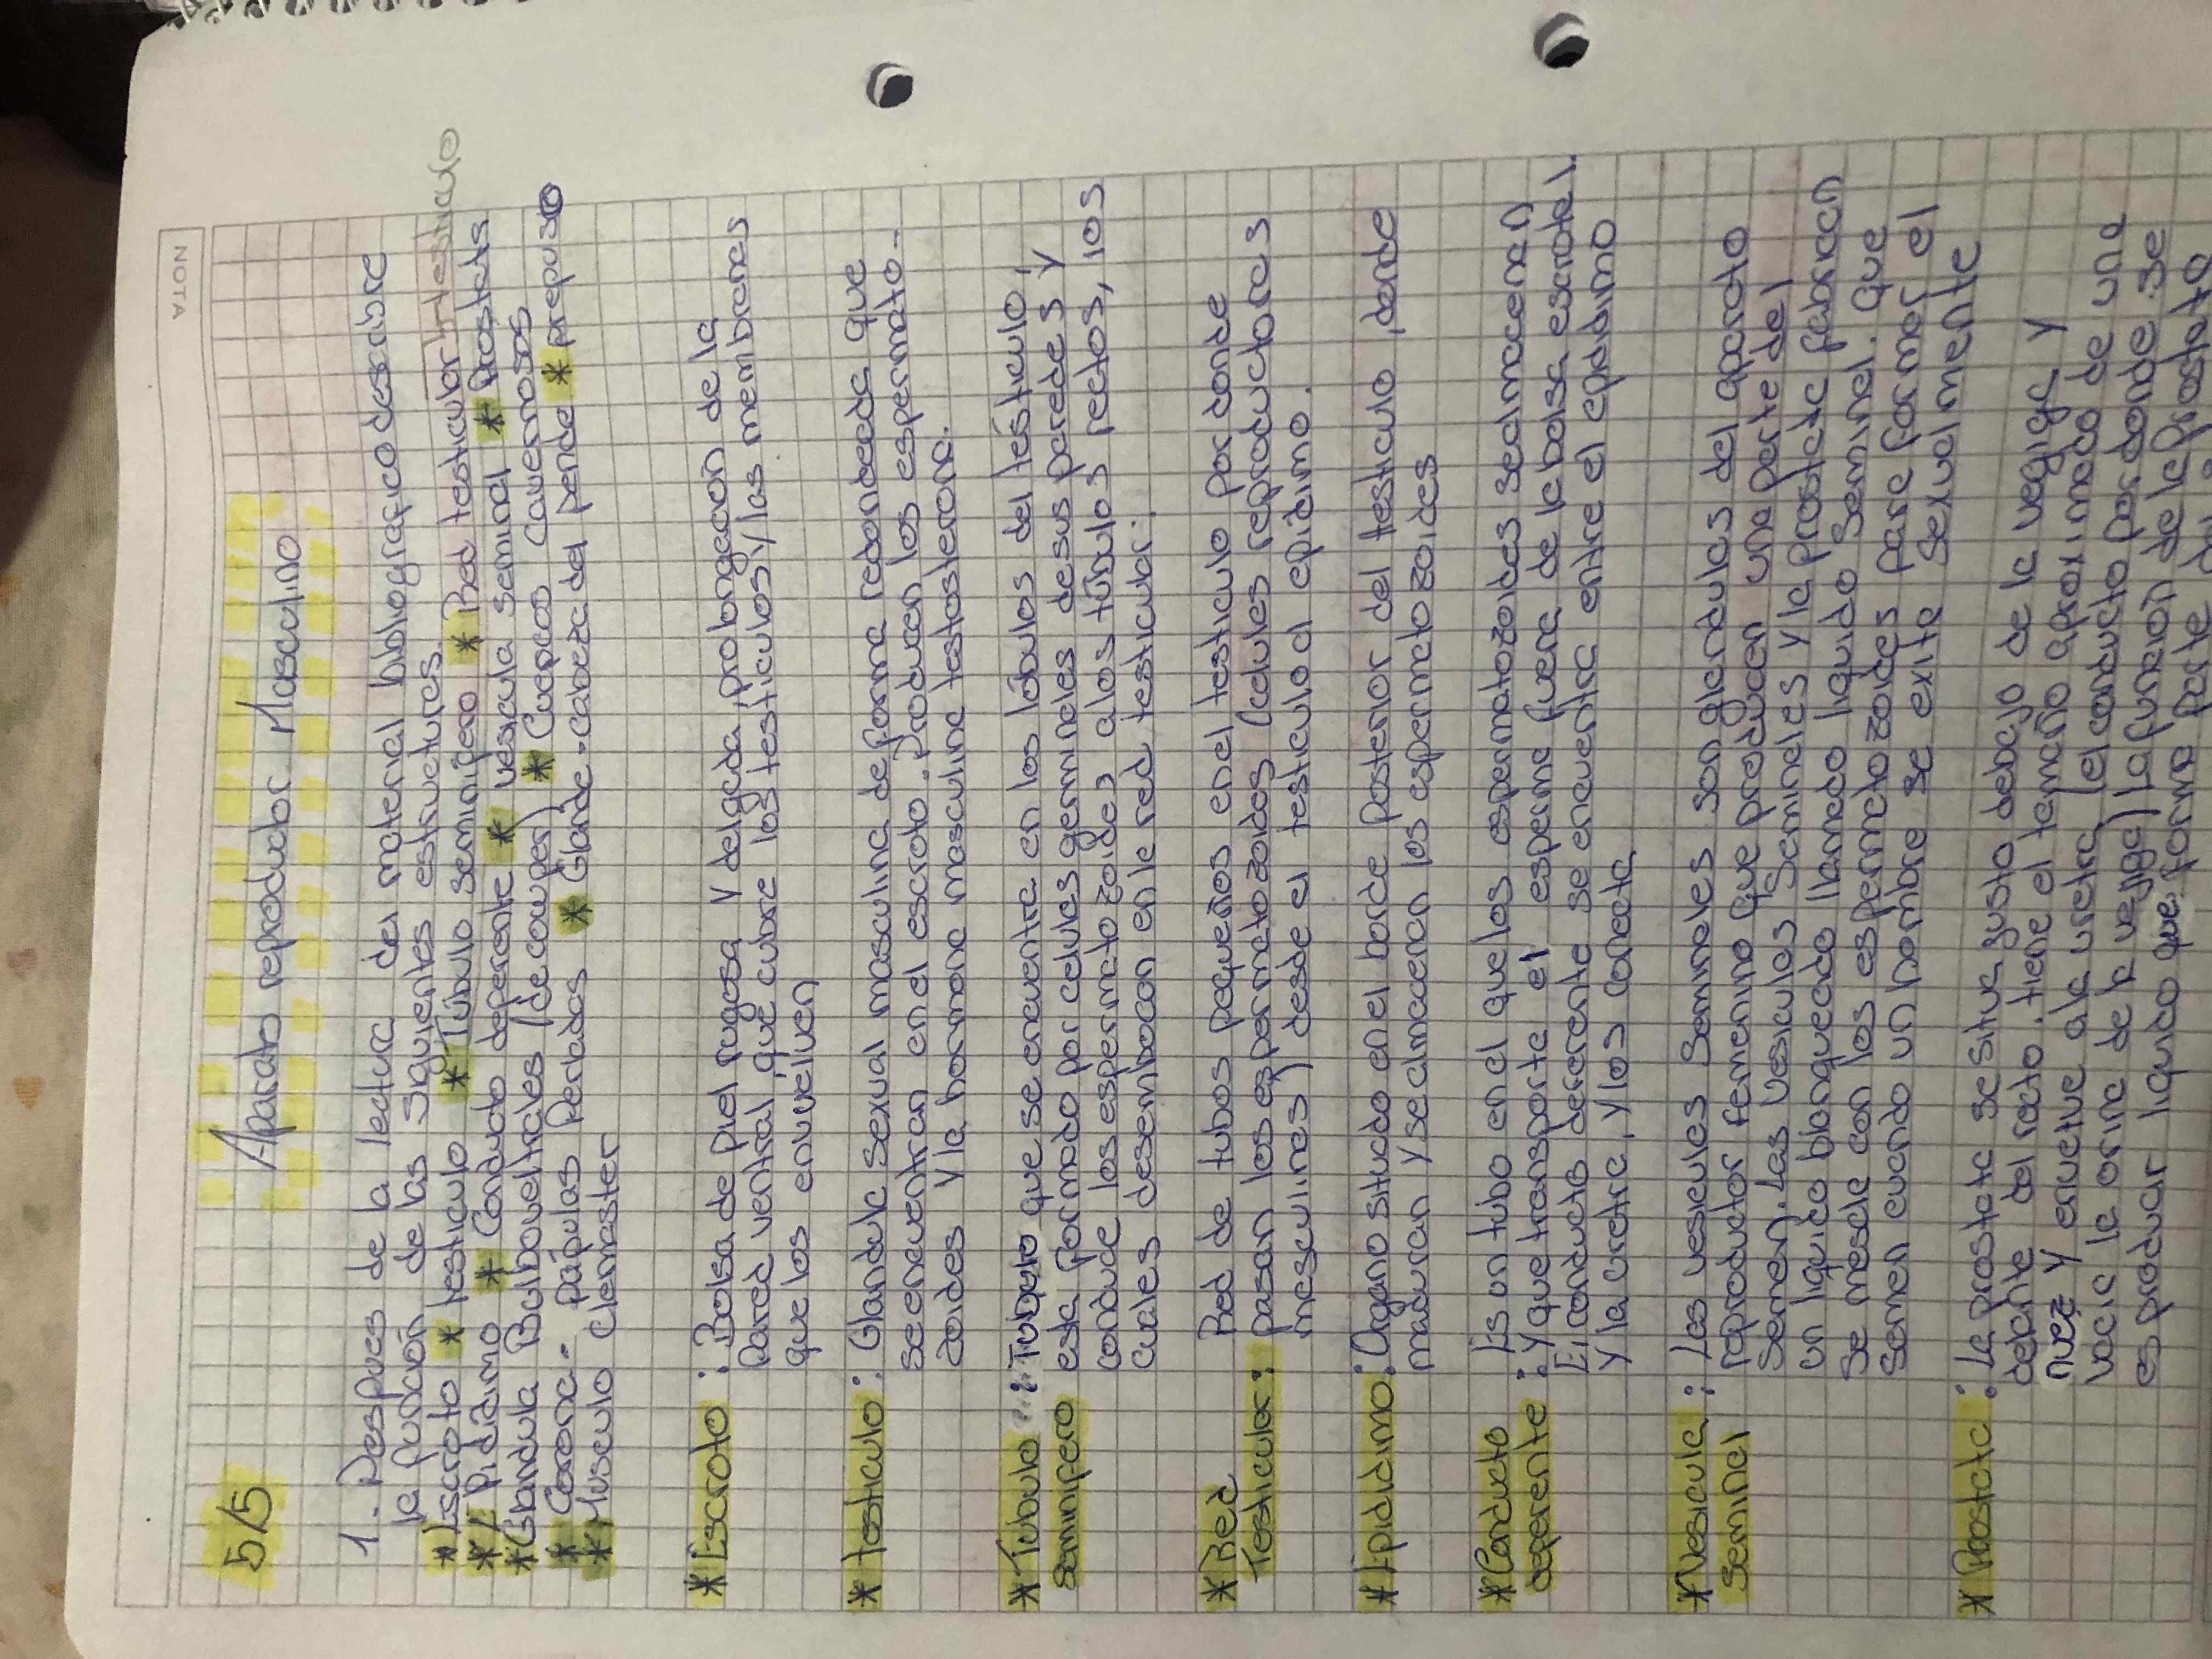 NOTA
5/5 Aparato reproductor Masculino
1. Despues de la lectura del material bibliografico describre
la función de las siguientes estructures.
* Escroto * testiculo * Túbulo seminifero * Red testicular
* E pididimo * Conducto deferente * vesicula seminal * Prostata
* Glandula Bulbouveltrales (de cowper) * Cuerpos Cavernosos
* Corona - pápulas Perladas * Glande - cabeza del pende * prepusio
* Musculo Clemaster
* Escroto : Bolsa de piel rugosa y delgada, prolongación de la
pared ventral, que cubre los testiculos y las membranas
que los envuelven
* testiculo : Glandula sexual masculina de forma redondeada que
se encuentran en el escroto. Producen los espermato-
zoides y la hormona masculina testosterona.
* Túbulo : Tubulo que se encuentra en los lóbulos del testiculo,
seminifero esta formado por celules germinales de sus paredes y
conduce los espermatozoides a los túbulos rectos, los
cuales desembocan en la red testicular.
* Red Red de tubos pequeños en el testiculo por donde
Testicular : pasan los espermatozoides (celules reproductores
masculinas) desde el testiculo al epidimo.
* Epididimo : Organo situado en el borde posterior del testiculo, donde
maduran y se almacenan los espermatozoides
* Conducto Es un tubo en el que los espermatozoides se almacenan
deferente : y que transporte el esperma fuera de la bolsa escrotal.
El conducto deferente se encuentra entre el epididimo
y la uretra, y los conecta.
* Vesicula : Las vesicules Seminales son glandulas del aparato
seminal reproductor femenino que producen una parte del
semen. Las vesicules Seminales y la prostata fabrican
un liquido blanquecino llamado liquido seminal. Que
se mescla con los espermatozoides para formar el
semen cuando un hombre se exite sexualmente
* Prostata : La prostata se situa justo debajo de la vegiga y
delante del recto. tiene el tamaño aproximado de una
nuez y envuelve a la uretra (el conducto por donde se
vacia la orina de la vejiga) La función de la Prostata
es producir liquido que forma parte